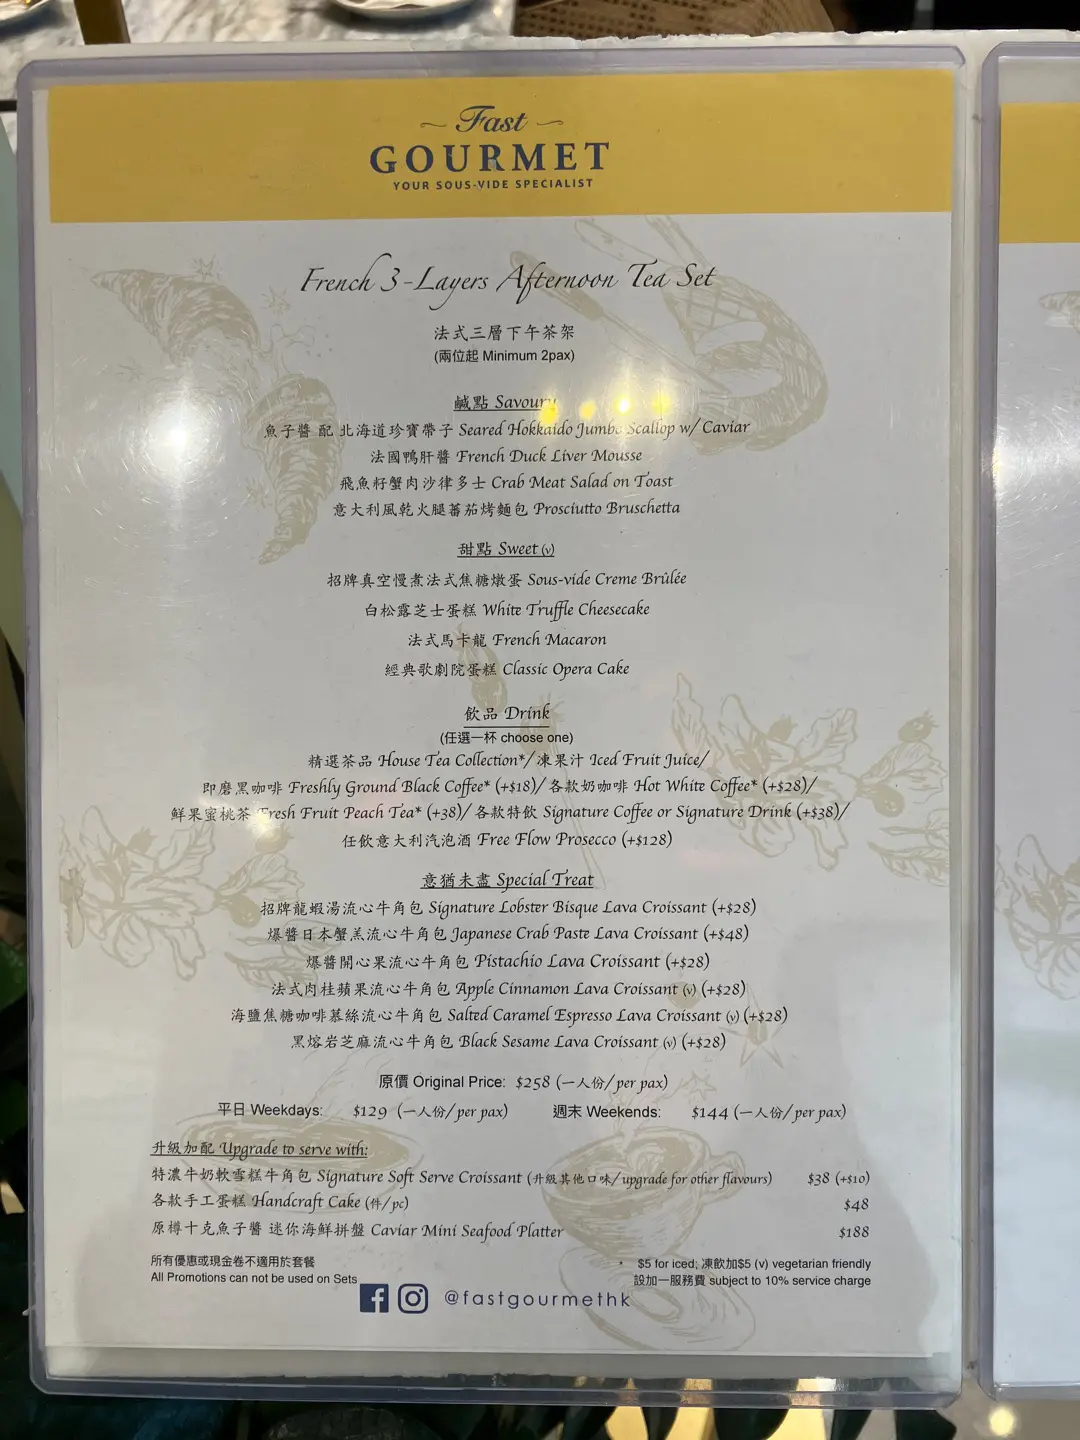 Fast
GOURMET
YOUR SOUS-VIDE SPECIALIST
French 3-Layers Afternoon Tea Set
法式三層下午茶架
(兩位起 Minimum 2pax)
鹹點 Savoury
魚子醬 配 北海道珍寶帶子 Seared Hokkaido Jumbo Scallop w/ Caviar
法國鴨肝醬 French Duck Liver Mousse
飛魚籽蟹肉沙律多士 Crab Meat Salad on Toast
意大利風乾火腿蕃茄烤麵包 Prosciutto Bruschetta
甜點 Sweet (v)
招牌真空慢煮法式焦糖燉蛋 Sous-vide Creme Brûlée
白松露芝士蛋糕 White Truffle Cheesecake
法式馬卡龍 French Macaron
經典歌劇院蛋糕 Classic Opera Cake
飲品 Drink
(任選一杯 choose one)
精選茶品 House Tea Collection*/ 凍果汁 Iced Fruit Juice/
即磨黑咖啡 Freshly Ground Black Coffee* (+$18)/ 各款奶咖啡 Hot White Coffee* (+$28)/
鮮果蜜桃茶 Fresh Fruit Peach Tea* (+38)/ 各款特飲 Signature Coffee or Signature Drink (+$38)/
任飲意大利汽泡酒 Free Flow Prosecco (+$128)
意猶未盡 Special Treat
招牌龍蝦湯流心牛角包 Signature Lobster Bisque Lava Croissant (+$28)
爆醬日本蟹羔流心牛角包 Japanese Crab Paste Lava Croissant (+$48)
爆醬開心果流心牛角包 Pistachio Lava Croissant (+$28)
法式肉桂蘋果流心牛角包 Apple Cinnamon Lava Croissant (v) (+$28)
海鹽焦糖咖啡慕絲流心牛角包 Salted Caramel Espresso Lava Croissant (v) (+$28)
黑熔岩芝麻流心牛角包 Black Sesame Lava Croissant (v) (+$28)
原價 Original Price: $258 (一人份/per pax)
平日 Weekdays: $129 (一人份/per pax) 週末 Weekends: $144 (一人份/per pax)
升級加配 Upgrade to serve with:
特濃牛奶軟雪糕牛角包 Signature Soft Serve Croissant (升級其他口味/upgrade for other flavours) $38 (+$10)
各款手工蛋糕 Handcraft Cake (件/pc) $48
原樽十克魚子醬 迷你海鮮拼盤 Caviar Mini Seafood Platter $188
所有優惠或現金卷不適用於套餐
All Promotions can not be used on Sets
* $5 for iced; 凍飲加$5 (v) vegetarian friendly
設加一服務費 subject to 10% service charge
@fastgourmethk